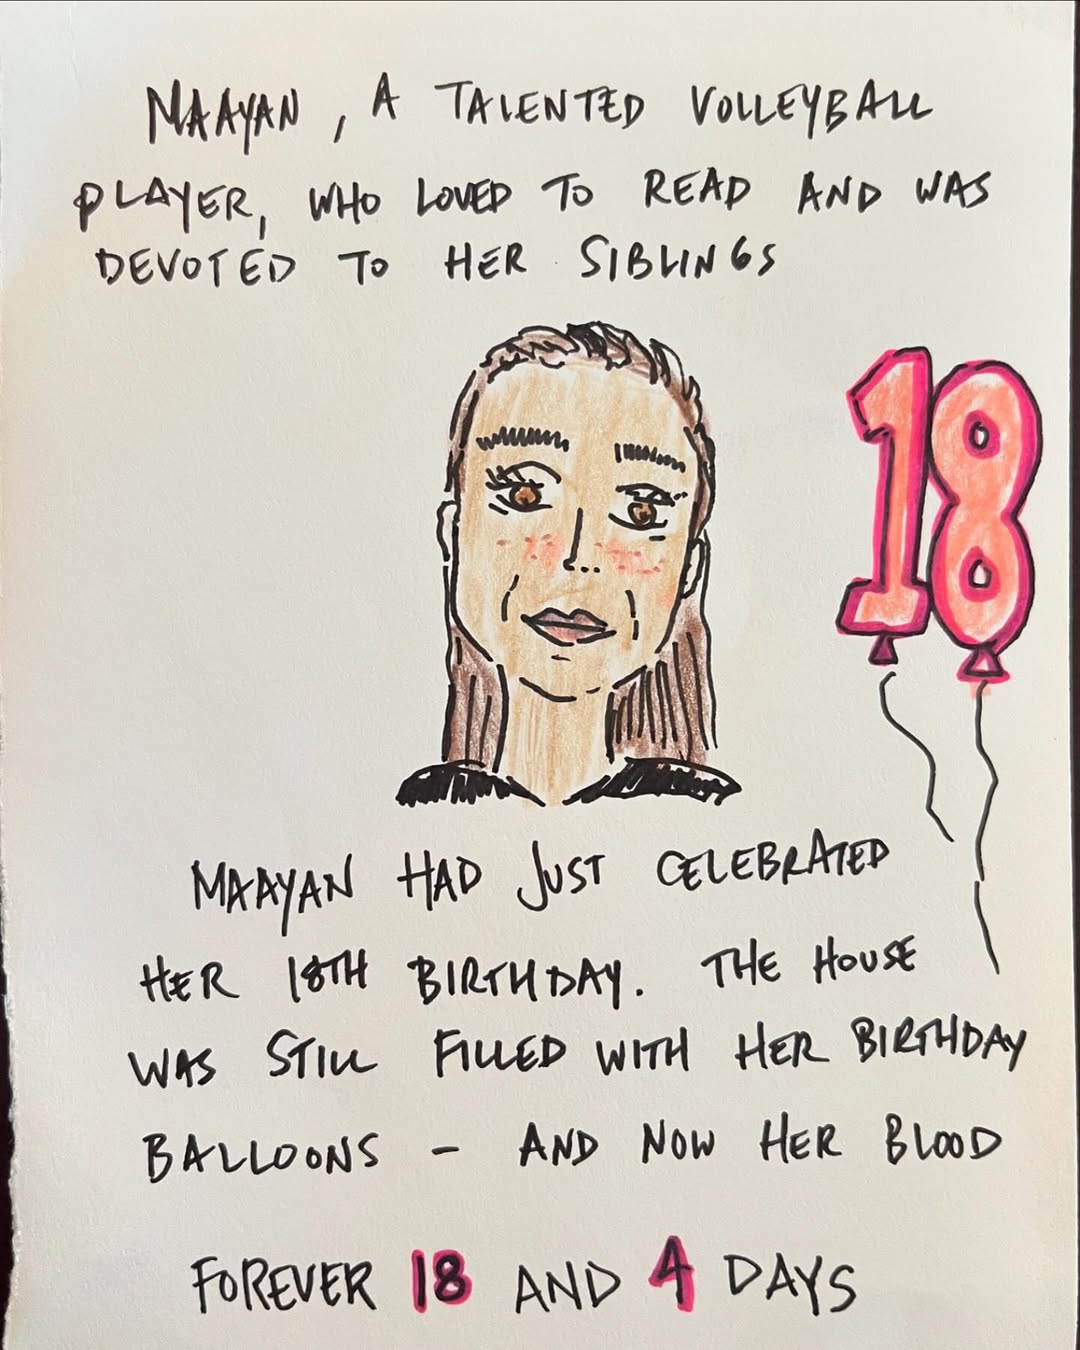 MAAYAN, A TALENTED VOLLEYBALL
PLAYER, WHO LOVED TO READ AND WAS
DEVOTED TO HER SIBLINGS
18
MAAYAN HAD JUST CELEBRATED
HER 18TH BIRTHDAY. THE HOUSE
WAS STILL FILLED WITH HER BIRTHDAY
BALLOONS - AND NOW HER BLOOD
FOREVER 18 AND 4 DAYS